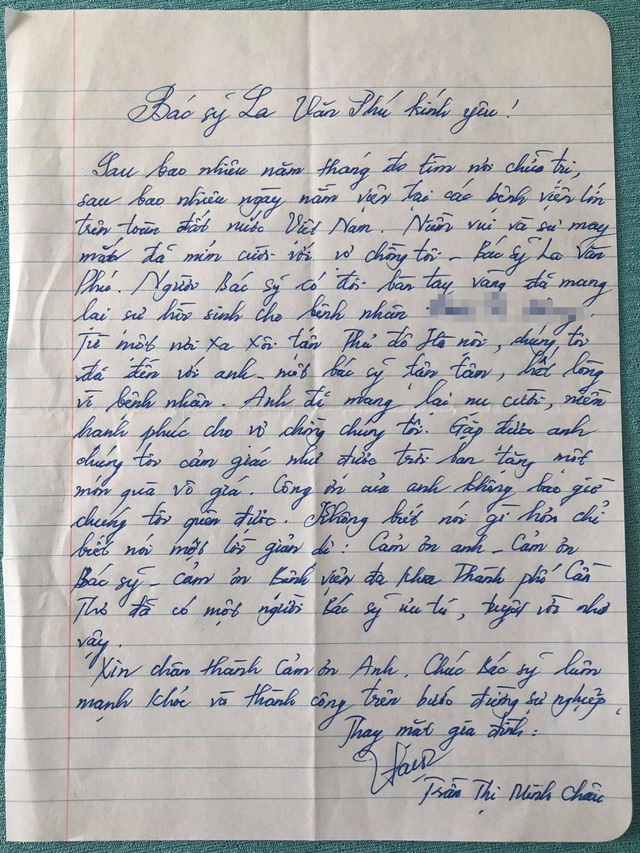 Bác sỹ La Văn Phú kính yêu!
Sau bao nhiêu năm tháng đo tìm nơi chữa trị,
sau bao nhiêu ngày nằm viện tại các bệnh viện lớn
trên toàn đất nước Việt Nam. Niềm vui và sự may
mắn đã mỉm cười với vợ chồng tôi - Bác sỹ La Văn
Phú. Người Bác sỹ có đôi bàn tay vàng đã mang
lại sự hồi sinh cho bệnh nhân
Từ một nơi xa xôi tận Thủ đô Hà nội, chúng tôi
đã đến với anh - một bác sỹ tận tâm, hết lòng
vì bệnh nhân. Anh đã mang lại nụ cười, niềm
hạnh phúc cho vợ chồng chúng tôi. Gặp được anh
chúng tôi cảm giác như được trời ban tặng một
món quà vô giá. Công ơn của anh không bao giờ
chúng tôi quên được. Không biết nói gì hơn chỉ
biết nói một lời giản dị: Cảm ơn anh - Cảm ơn
Bác sỹ - cảm ơn Bệnh viện đa khoa Thành phố Cần
Thơ đã có một người Bác sỹ ưu tú, tuyệt vời như
vậy.
Xin chân thành Cảm ơn Anh. Chúc Bác sỹ luôn
mạnh khỏe và thành công trên bước đường sự nghiệp.
Thay mặt gia đình:
Trần Thị Minh Châu